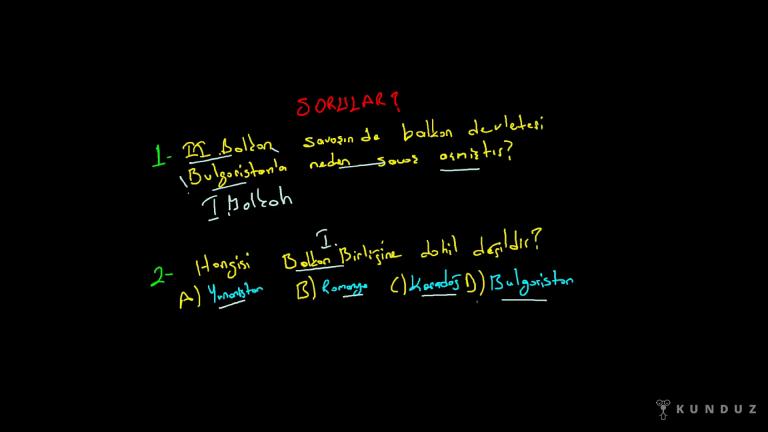 SORULAR?
1- II. Balkan savaşında balkan devletesi
Bulgaristan'a neden savaş açmıştır?
I Balkan
I.
2- Hangisi Balkan Birliğine dahil değildir?
A) Yunanistan B) Romanya C) Karadağ D) Bulgaristan
KUNDUZ